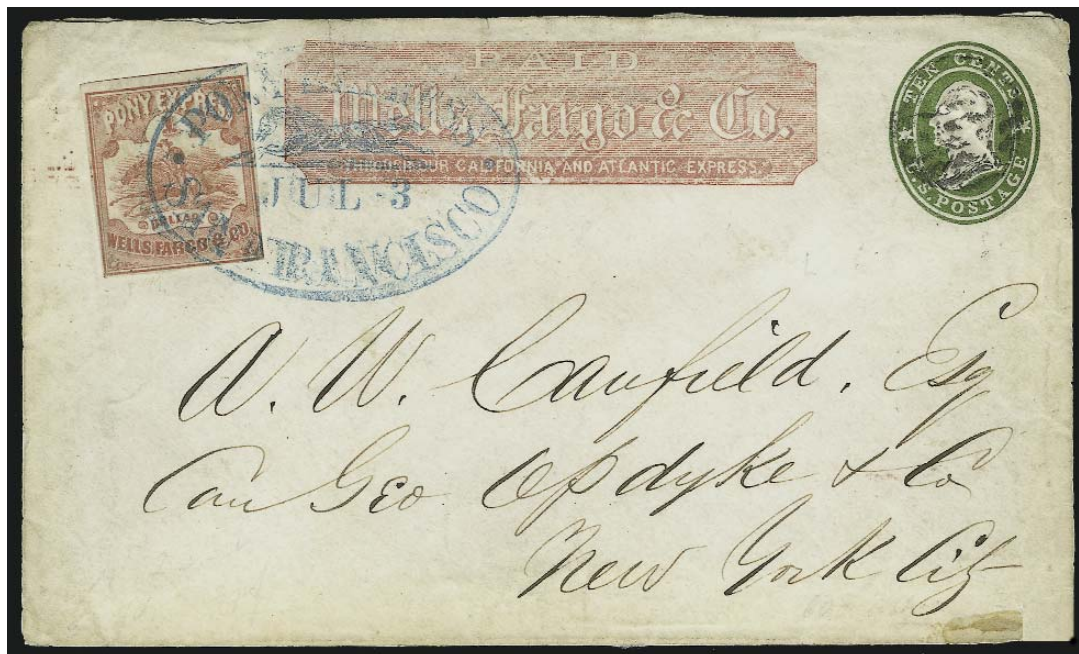 PONY EXPRESS
DOLLAR
WELLS, FARGO & CO.
PONY EXPRESS
JUL 3
SAN FRANCISCO
PAID
Wells, Fargo & Co.
THROUGH OUR CALIFORNIA AND ATLANTIC EXPRESS.
TEN CENTS
U.S. POSTAGE
A. W. Canfield, Esq
Care Geo Opdyke & Co
New York City